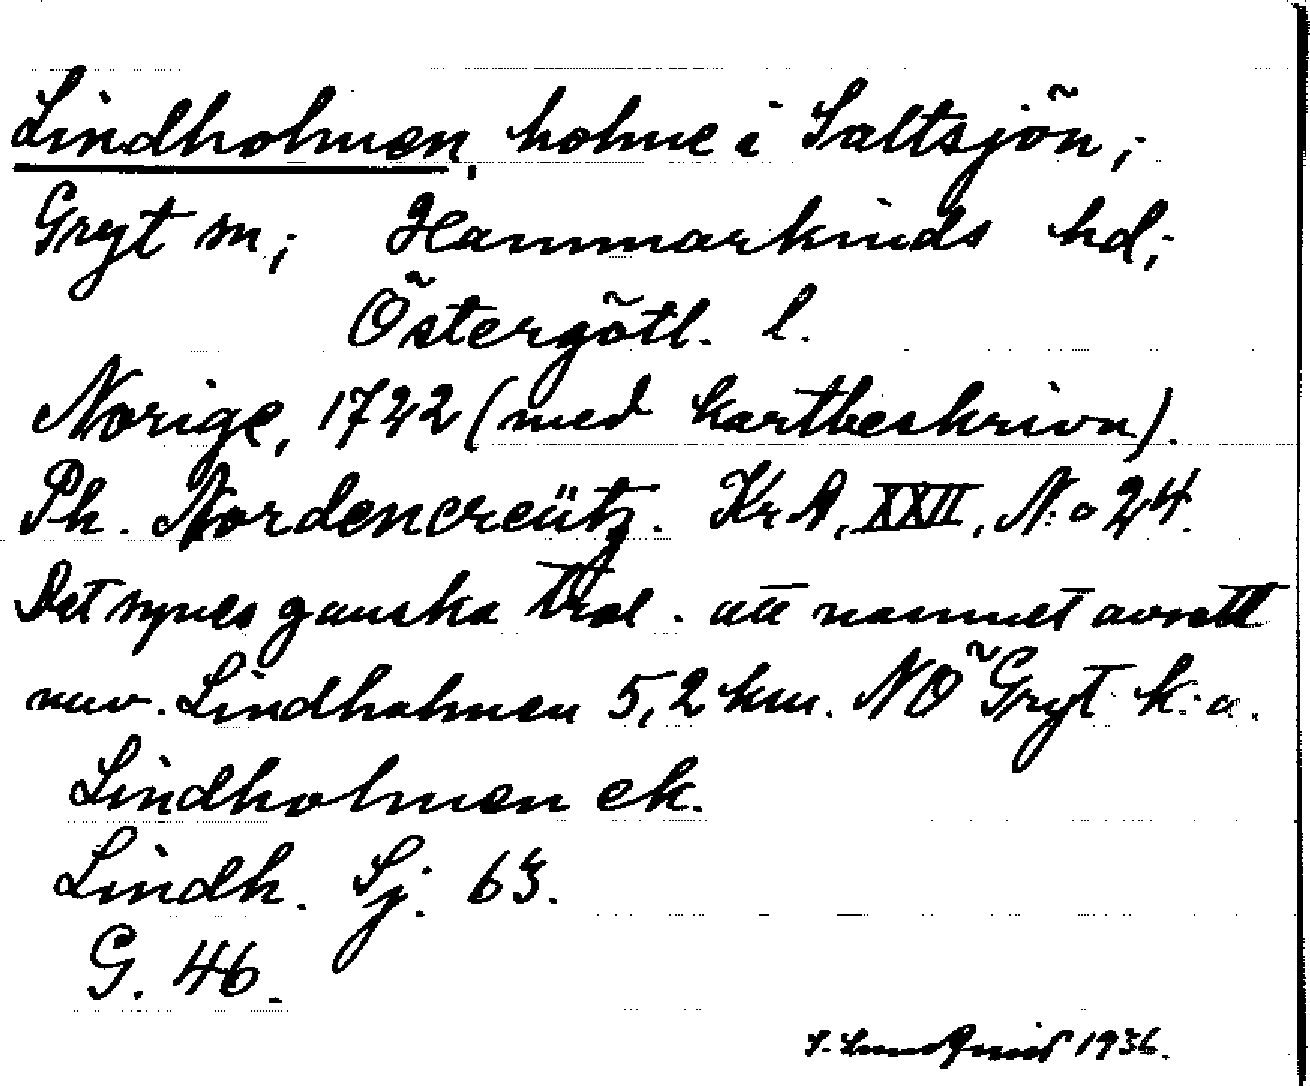 Lindholmen, holme i Saltsjön,;
Gryt sn,; Hammarkinds hd,;
Östergötl. l.
Norige, 1722 (med kartbeskrivn).
Ph. Nordencreütz. Kr A, XXII, N:o 24.
Det synes ganska trol. att namnet avsett
nuv. Lindholmen 5,2 km. NO Gryt k:a.
Lindholmen ek.
Lindh. Sj. 63.
G. 46.
S. Lundquist 1936.